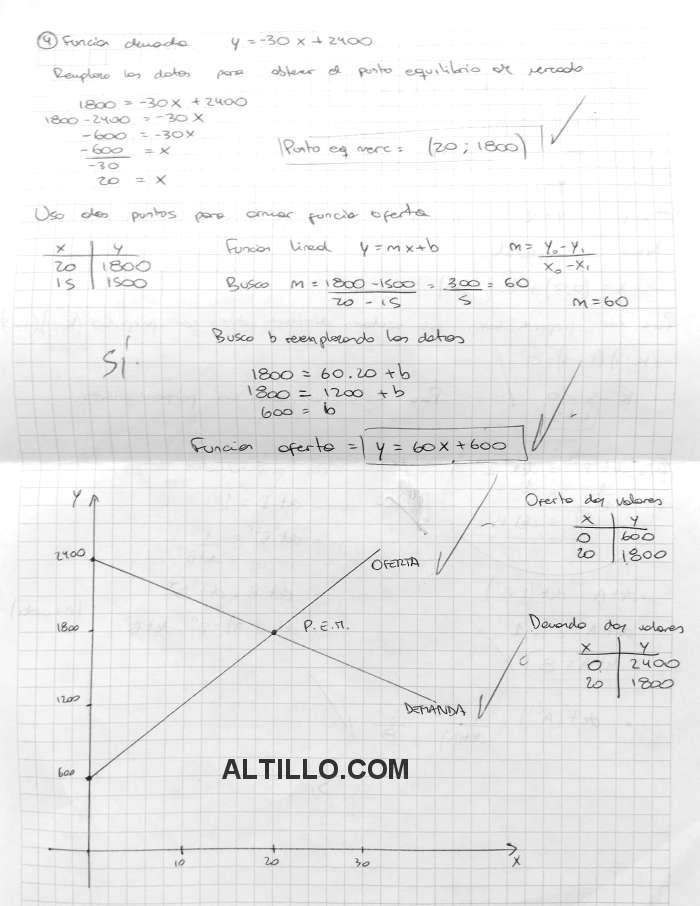 4 Funcion demanda y = -30x + 2400
Remplazo los datos para obtener el punto equilibrio de mercado
1800 = -30x + 2400
1800 - 2400 = -30x
-600 = -30x
-600 = x
-30
20 = x
Punto eq merc = (20 ; 1800)
Uso dos puntos para armar funcion oferta
x y
20 1800
15 1500
Funcion lineal y = mx + b m = y₀ - y₁
x₀ - x₁
Busco m = 1800 - 1500 = 300 = 60
20 - 15 5
m = 60
SÍ
Busco b reemplazando los datos
1800 = 60.20 + b
1800 = 1200 + b
600 = b
Funcion oferta = y = 60x + 600
Oferta dos valores
x y
0 600
20 1800
Demanda dos valores
x y
0 2400
20 1800
Y
2400
1800
1200
600
OFERTA
P.E.M.
DEMANDA
10 20 30 X
ALTILLO.COM